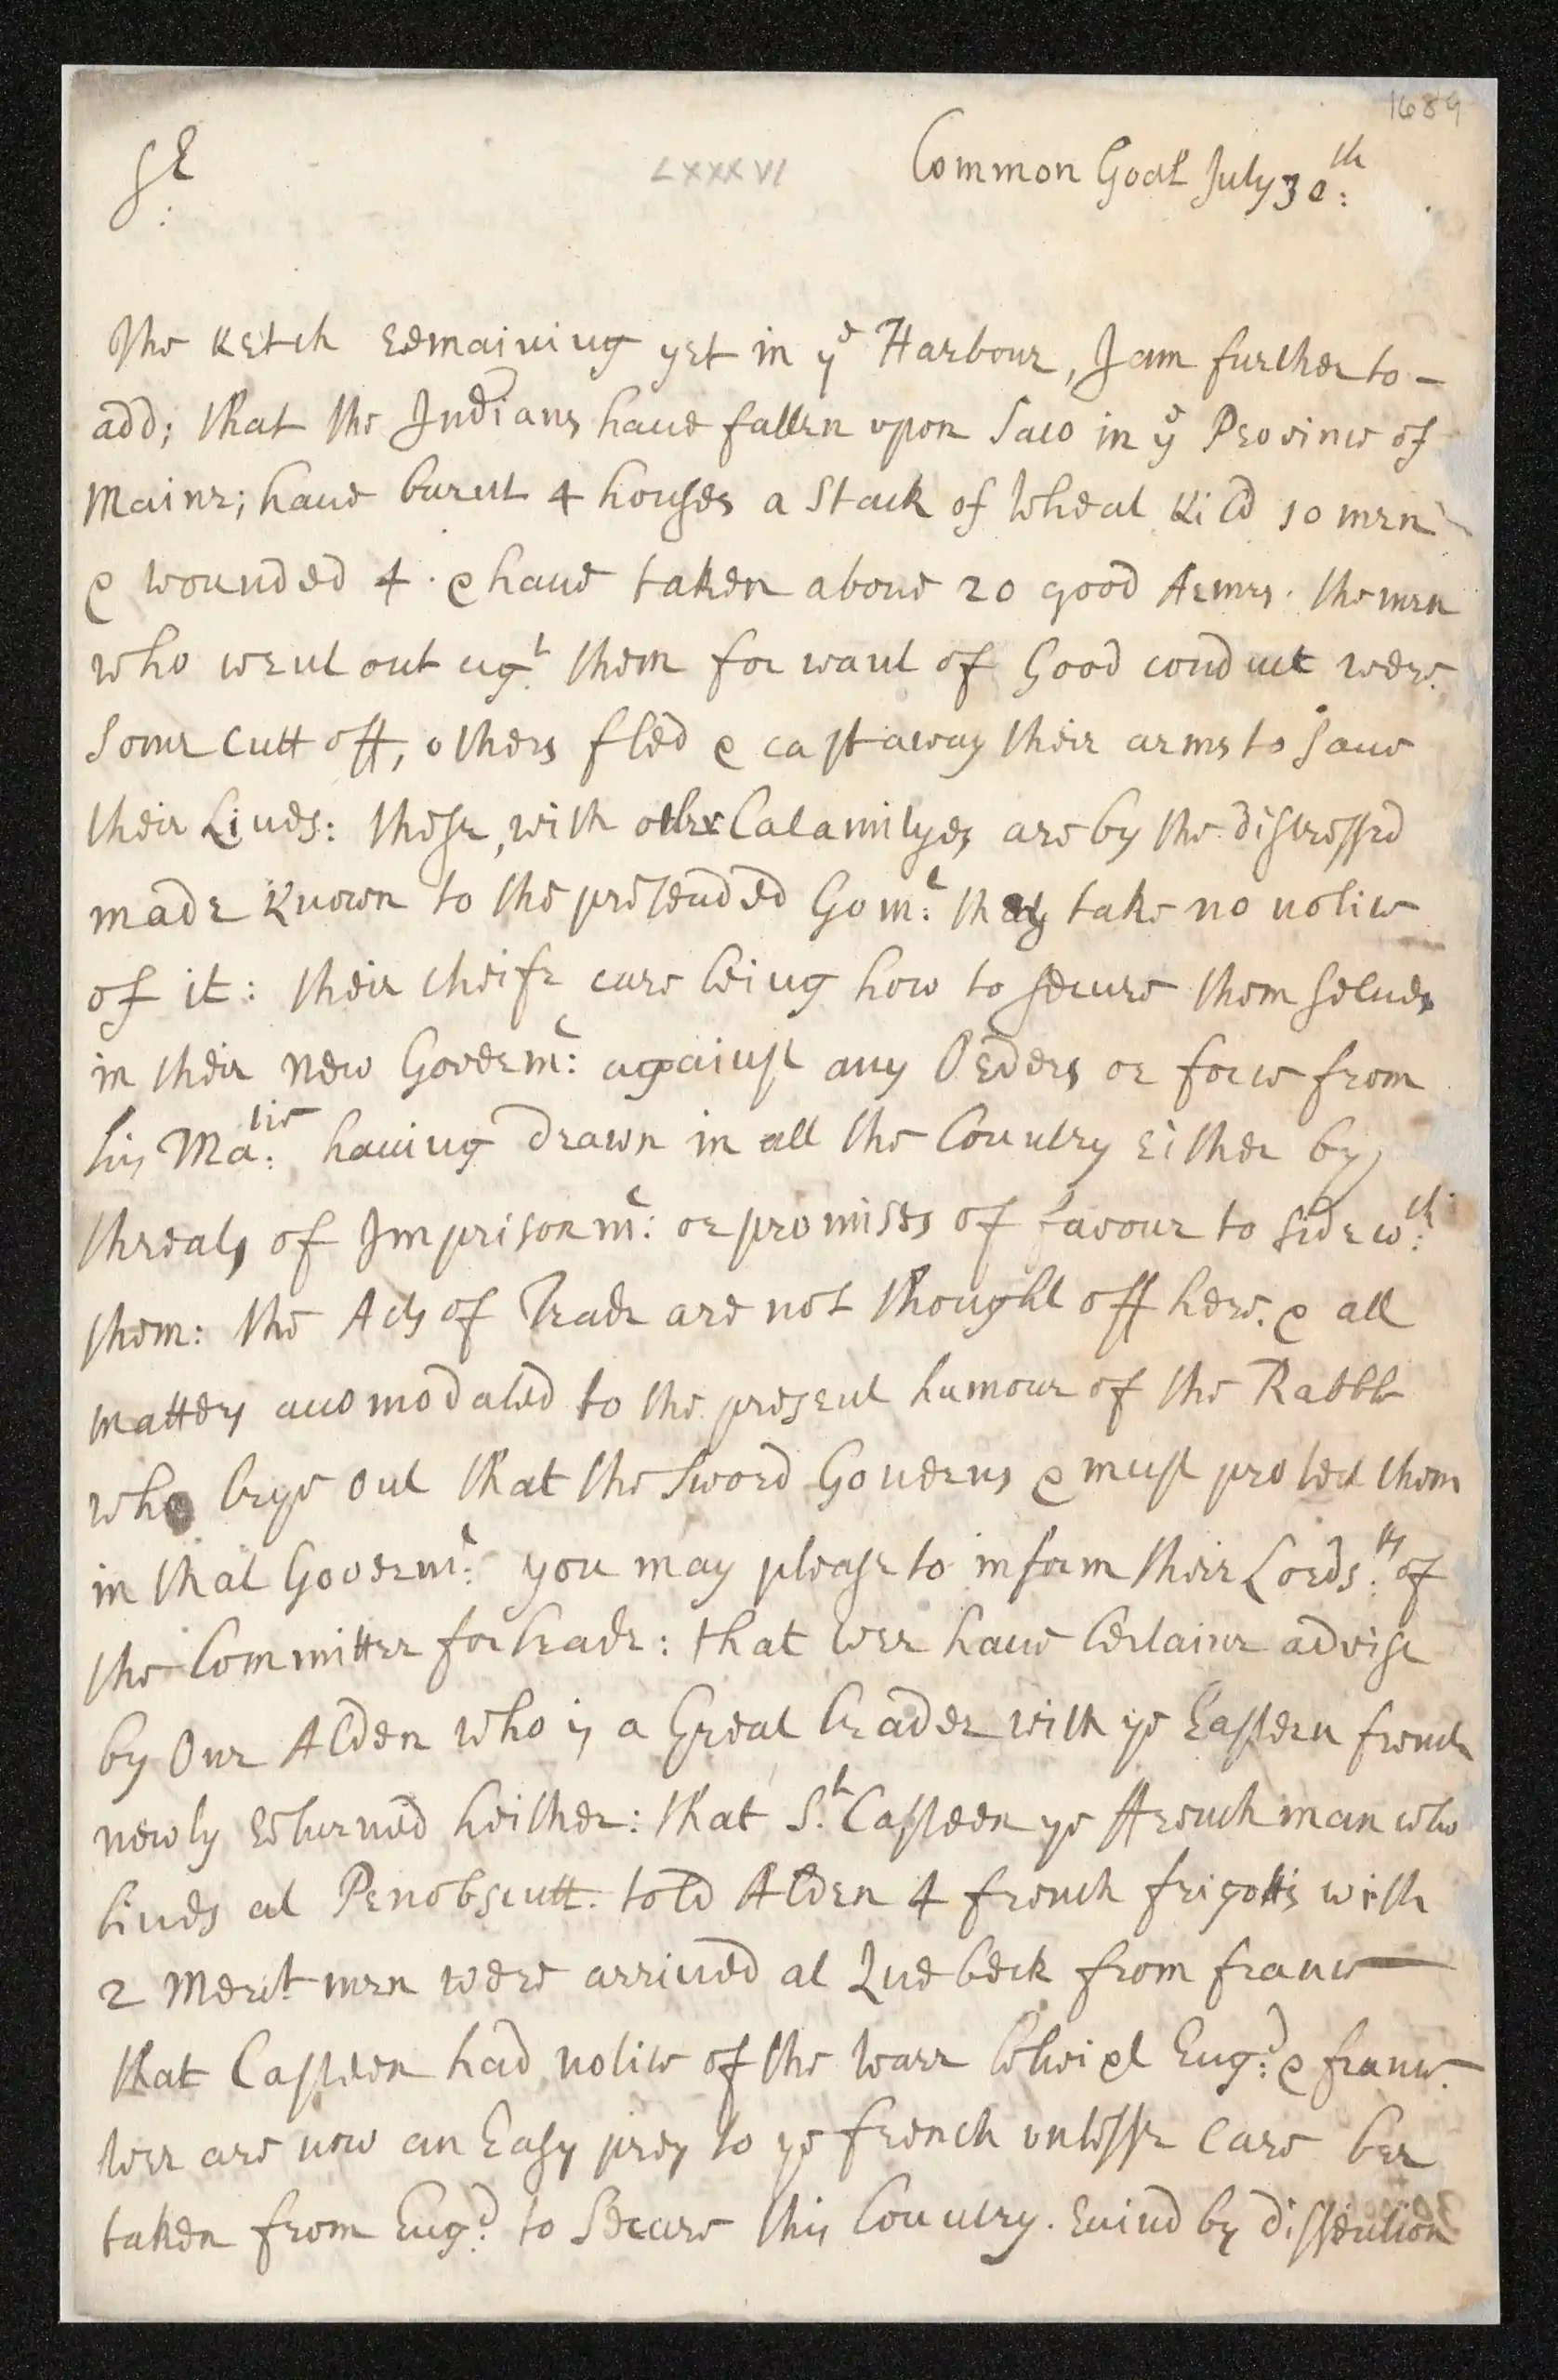 1689
Sr:
LXXXVI
Common Goal July 30th:
The Ketch remaining yet in ye Harbour, I am further to -
add; that the Indians haue fallen upon Saco in ye Province of
Maine; haue burnt 4 houses a Stack of Wheat Kild 10 men
& wounded 4. & haue taken aboue 20 good Armes. the men
who went out agt. them for want of Good conduct were.
Some cutt off, others fled & cast away their arms to saue
their Liues: these, with other Calamityes are by the distressed
made Known to the pretended Gomt: they take no notice
of it: their cheife care being how to secure themselues
in their new Governmt: against any Orders or force from
his Matie: hauing drawn in all the Country either by
threats of Imprisonmt: or promises of favour to side wth:
them: the Acts of Trade are not thought off here. & all
matters accomodated to the present humour of the Rabble
who crye out that the Sword Gouerns & must protect them
in that Governmt: you may please to inform their Lordsps: of
the Committee for trade: that wee haue Certaine advise
by Our Alden who is a Great trader with ye Eastern french
newly returned heither: that St. Casteen ye ffrench man who
liues at Penobscutt. told Alden 4 french frigotts with
2 Mercht. men were arriued at Quebeck from france
that Casteen had notice of the warr betweixt Engd: & france.
wee are now an Easy prey to ye french unlesse care bee
taken from Engd: to Secure this Country. Ruind by dissention